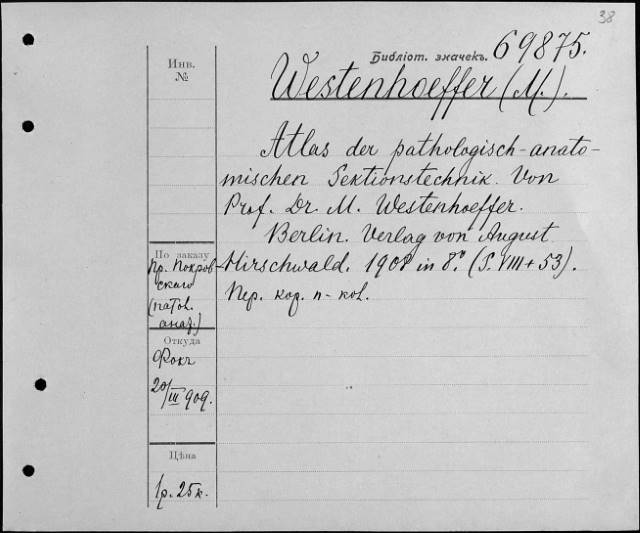 38
Библіот. значекъ. 69875.
Westenhoeffer (M.).
Atlas der pathologisch-anato-
mischen Sektionstechnik. Von
Prof. Dr. M. Westenhoeffer.
Berlin. Verlag von August
Hirschwald. 1908 in 8.º (S. VIII + 53).
Пер. кор. п-кол.
Инв.
№
По заказу
Пр. Покров-
скаго
(патол.
анат.)
Откуда
Фокъ
20/III 909.
Цѣна
1р. 25к.